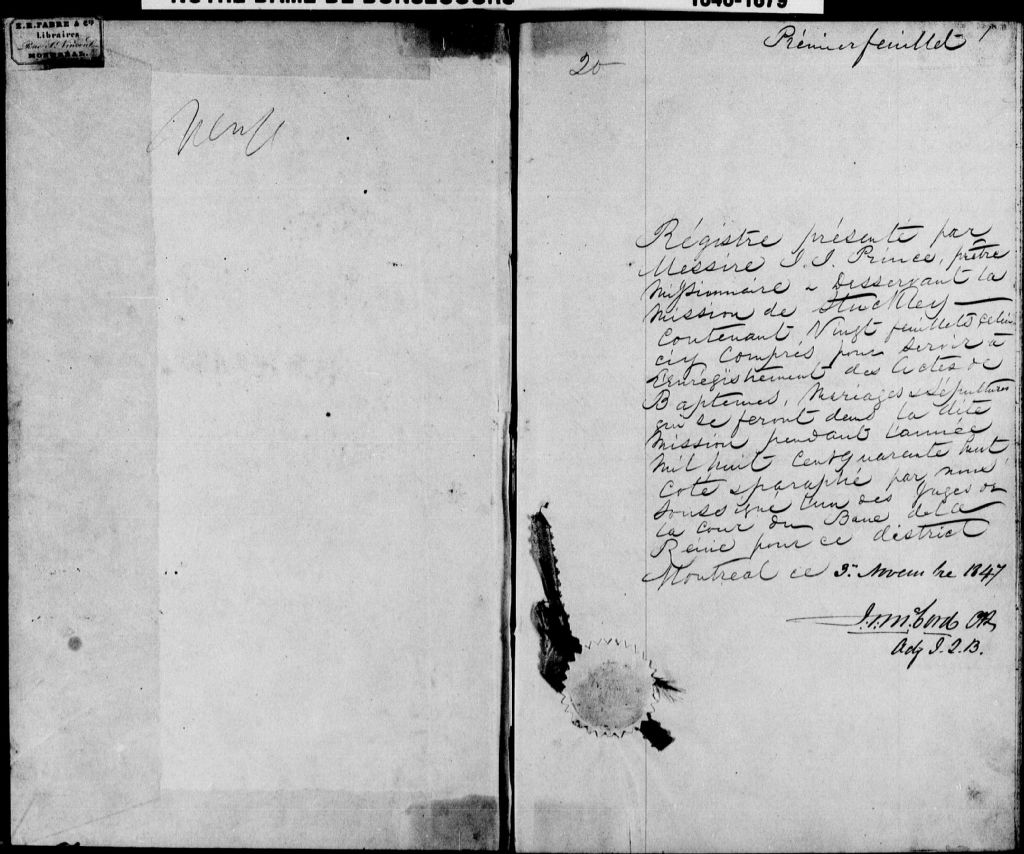 NOTRE-DAME DE BONSECOURS 1848-1879
E. R. FABRE & Cie
Libraires
Rue St. Vincent
MONTRÉAL.
Prémier feuillet 1
20
Régistre présenté par
Messire J. J. Prince, prêtre
Missionnaire - Desservant la
Mission de Stuckley
Contenant Vingt feuillets celui
ciy Compris pour servir à
L'enrégistrement des Actes de
Baptemes, Mariages & sépultures
qui se feront dans la dite
Mission pendant l'année
Mil huit cent quarante huit
Coté & paraphé par nous
Soussigné l'un des Juges de
la Cour du Banc de la
Reine pour ce district
Montréal ce 3 Novembre 1847
McCord
Adj J.Q.B.